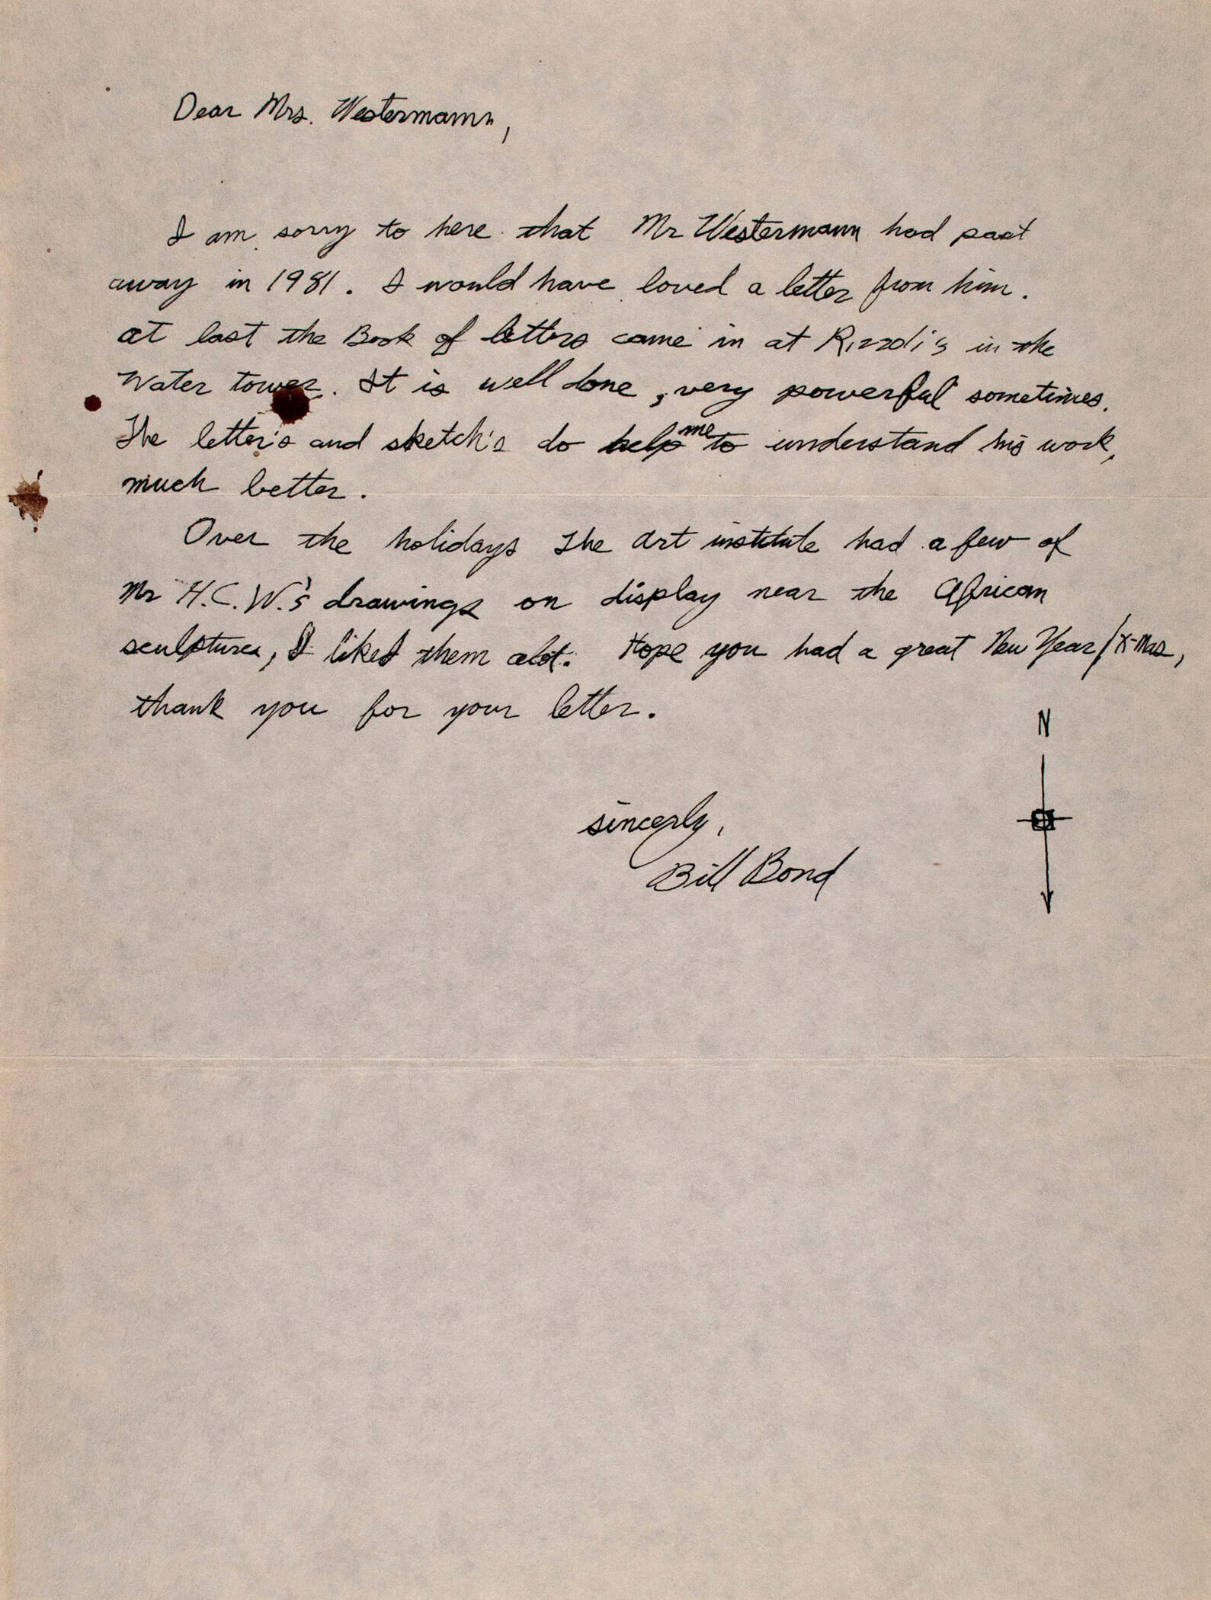 Dear Mrs. Westermann,
I am sorry to here that Mr Westermann had past
away in 1981. I would have loved a letter from him.
at last the Book of letters came in at Rizzoli's in the
Water tower. It is well done, very powerful sometimes.
The letter's and sketch's do help me to understand his work,
much better.
Over the holidays The Art institute had a few of
Mr H.C.W.'s drawings on display near the African
sculptures, I liked them alot. Hope you had a great New Year/X-Mas,
thank you for your letter.
N
sincerly,
Bill Bond